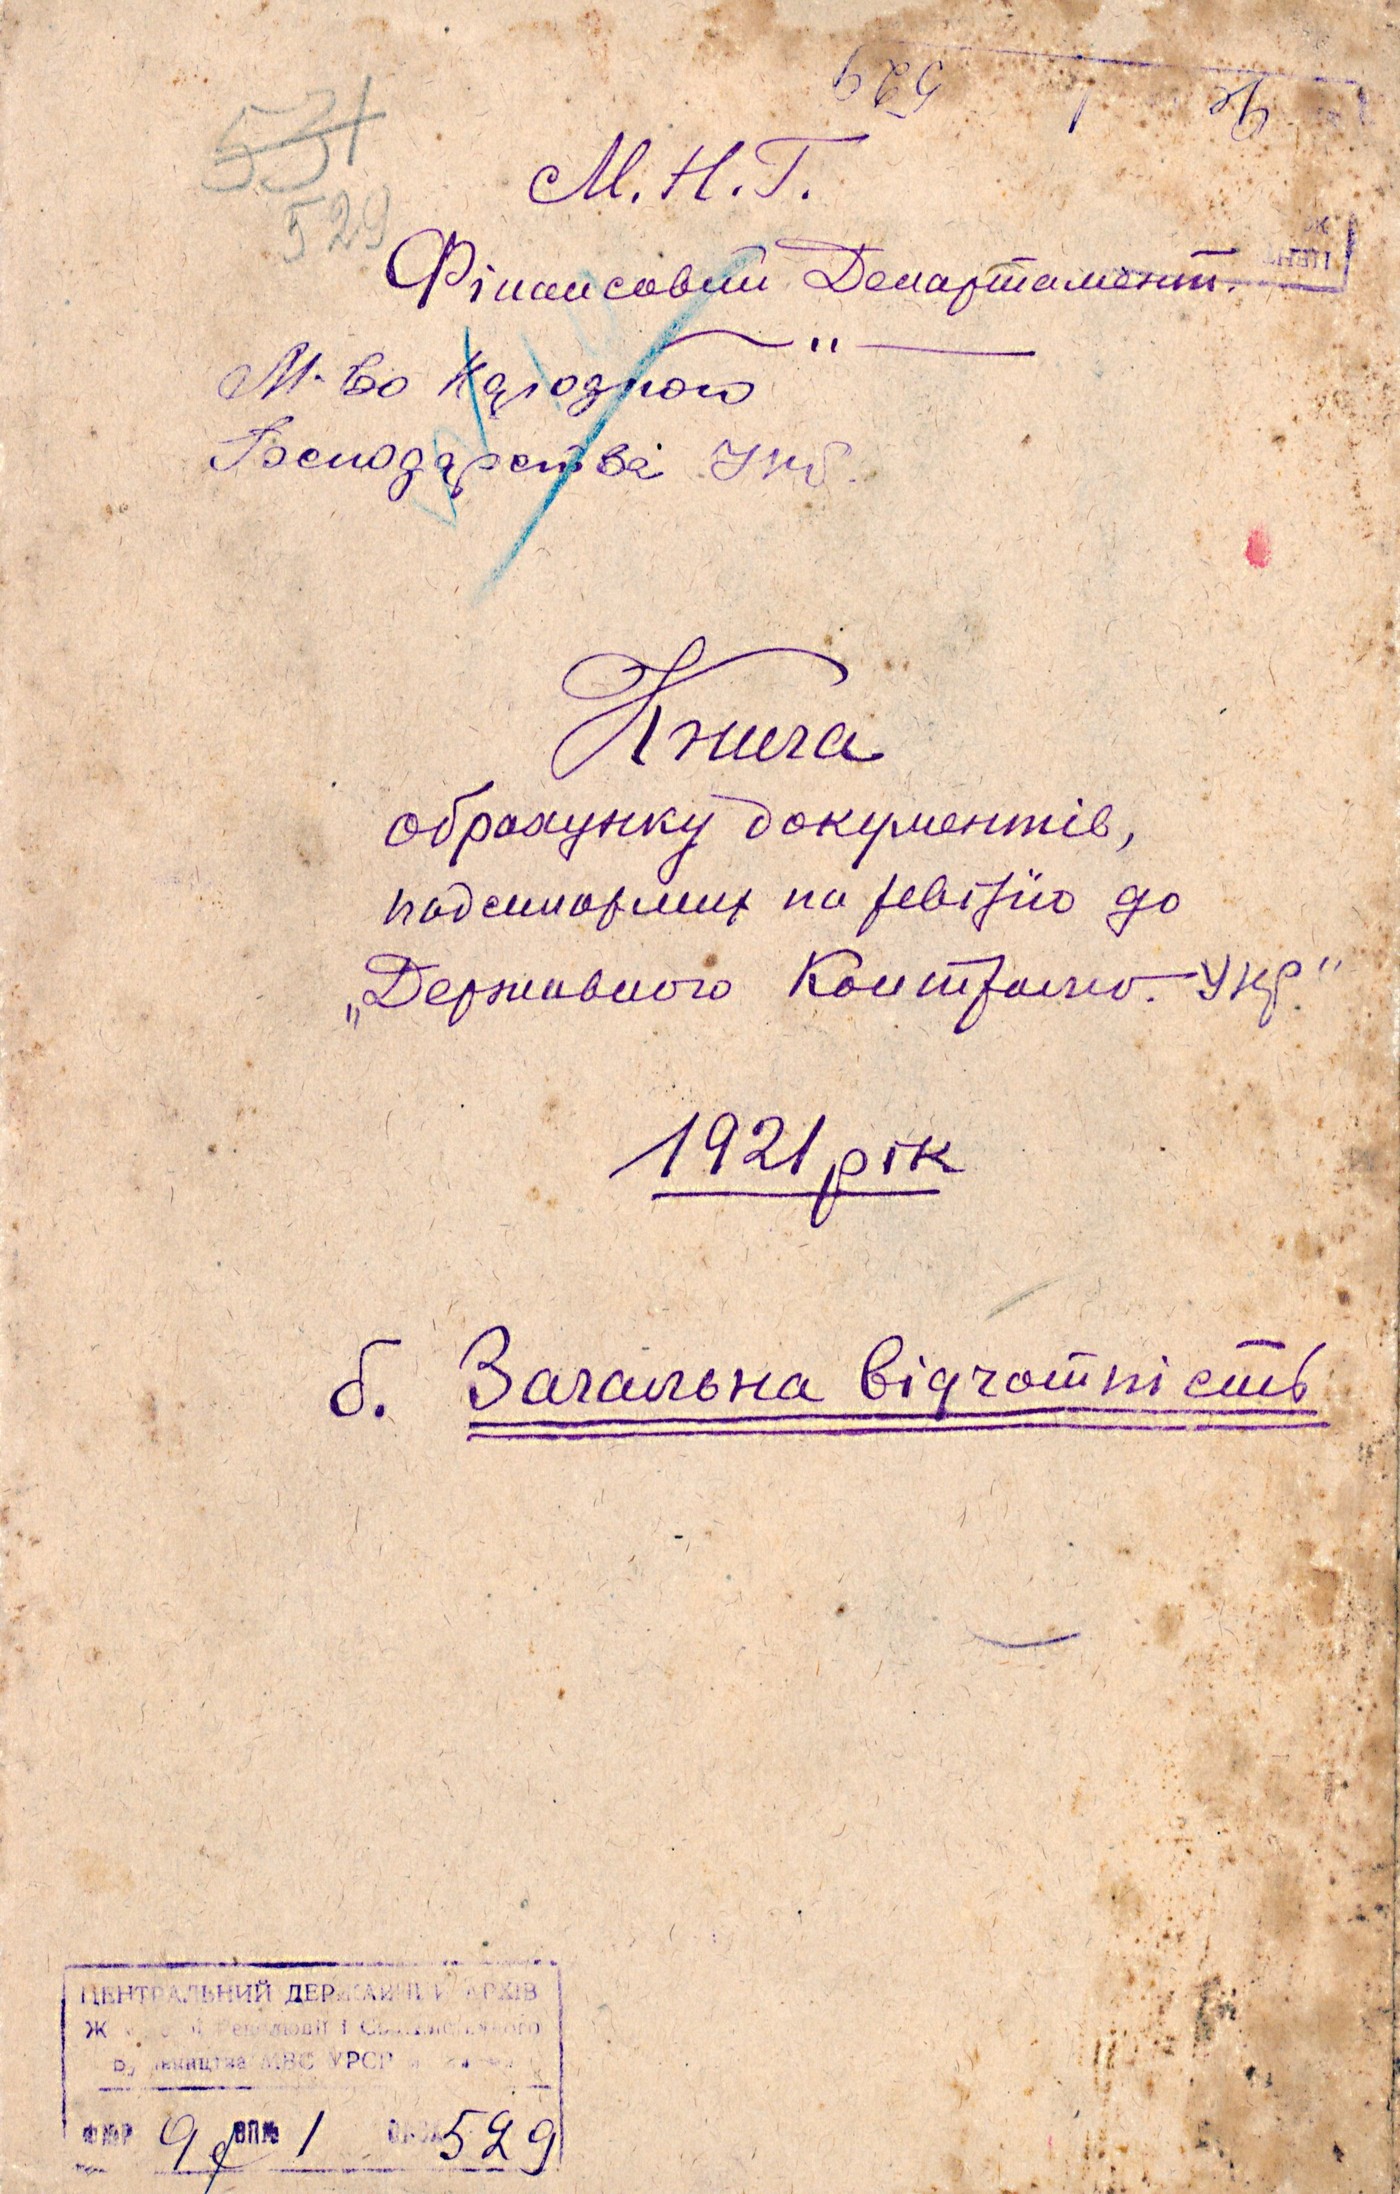 531
529
М. Н. Г.
Фінансовий Департамент.
М-во Народного
Господарства Укр.
Книга
обрахунку документів,
надсилаємих на ревізію до
„Державного Контролю Укр."
1921 рік
б. Загальна відчотність
ЦЕНТРАЛЬНИЙ ДЕРЖАВНИЙ АРХІВ
Жовтневої Революції і Соціалістичного
Будівництва МВС УРСР
ФОНД ОПИС 1 529